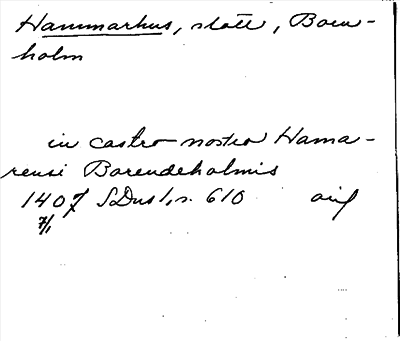 Hammarhus, slott, Born-
holm
in castro nostro Hama-
rensi Borendeholmis
1407 SDns 1, s. 610 orig
7/1